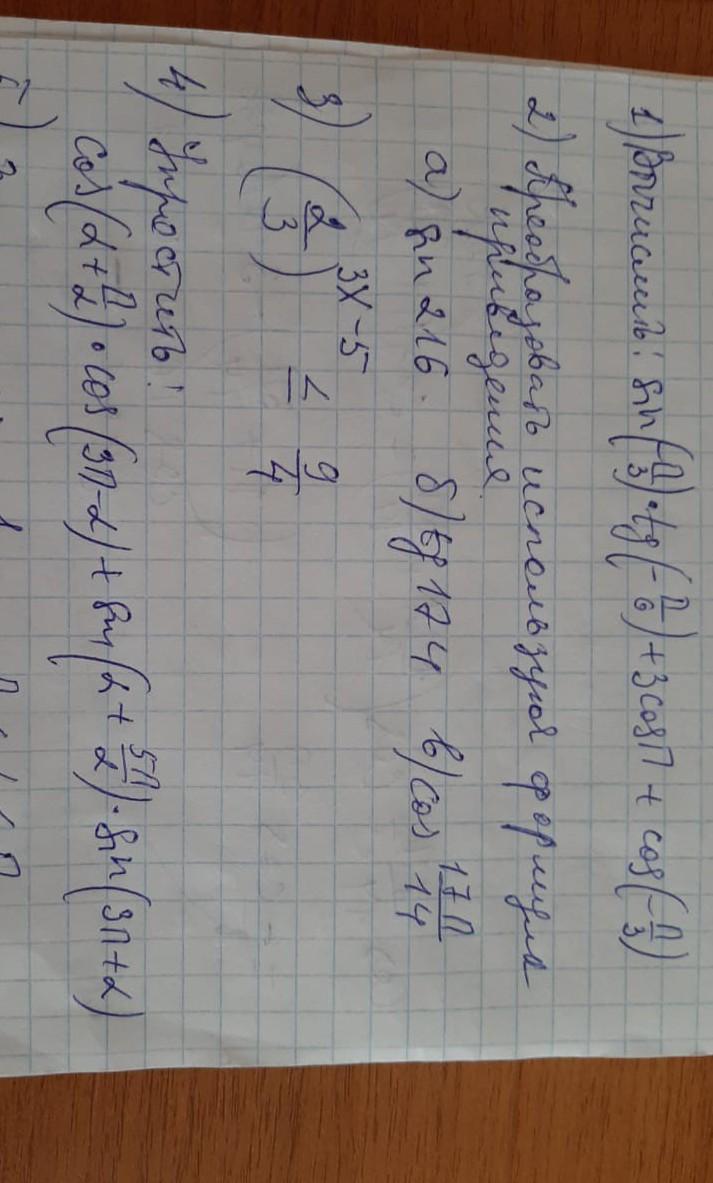 1) Вычислить: sin(π/3)·tg(-π/6)+3cosπ + cos(-π/3)
2) Преобразовать используя формулы
приведения
а) sin 216. б) tg 174 в) cos 17π/14
3) (2/3)^(3x-5) ≤ 9/4
4) Упростить:
cos(α+π/2)·cos(3π-α)+sin(α+5π/2)·sin(3π+α)